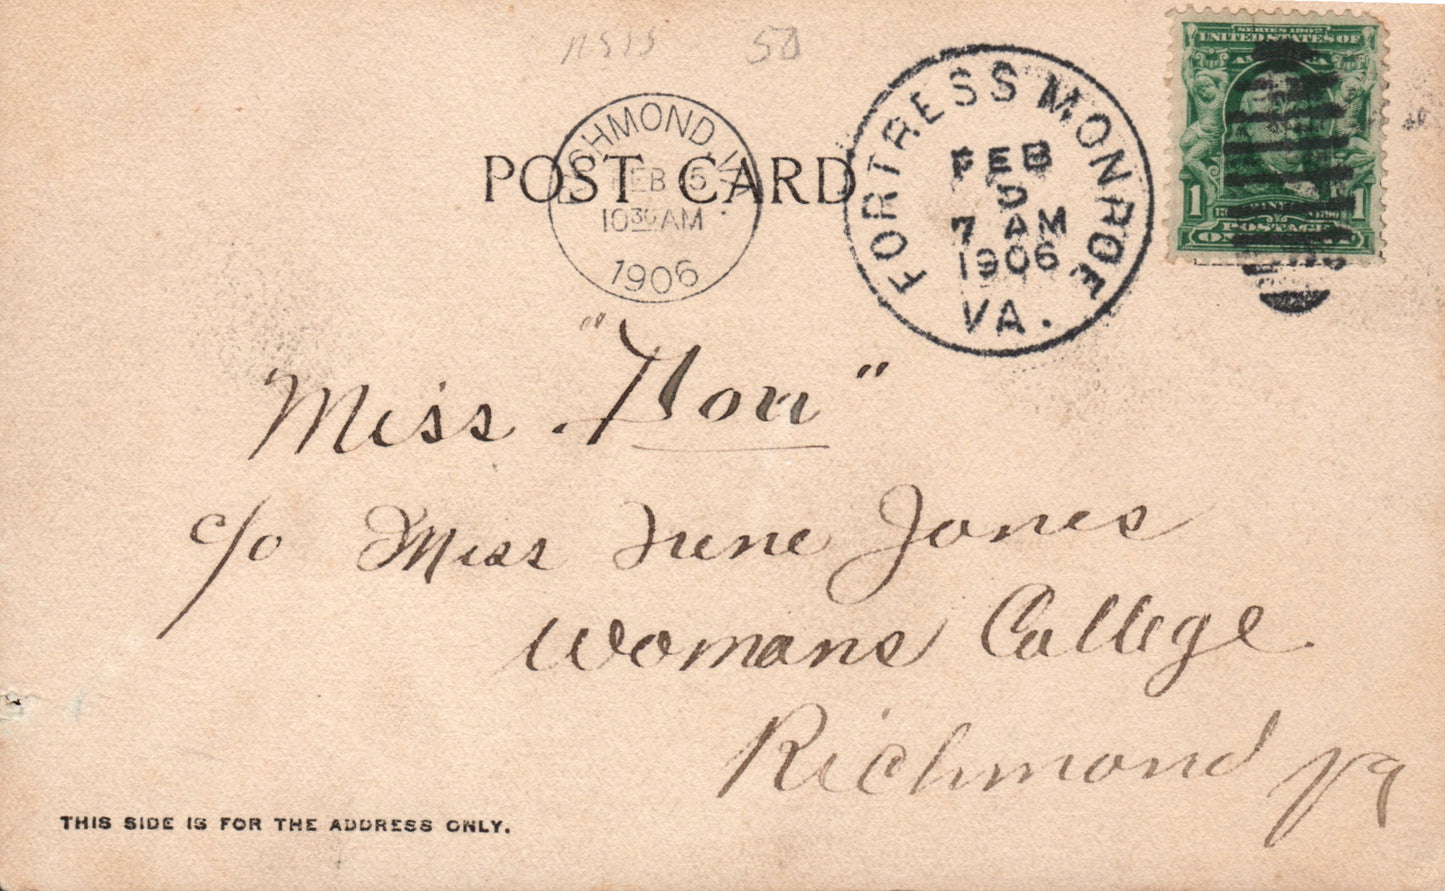 50
SERIES 1902
UNITED STATES OF
AMERICA
1 1
POSTAGE
RICHMOND, VA
FEB 5
10 30 AM
1906
FORTRESS MONROE
FEB
5
7 AM
1906
VA.
POST CARD
Miss "You"
c/o Miss Irene Jones
Womans College
Richmond Va
THIS SIDE IS FOR THE ADDRESS ONLY.